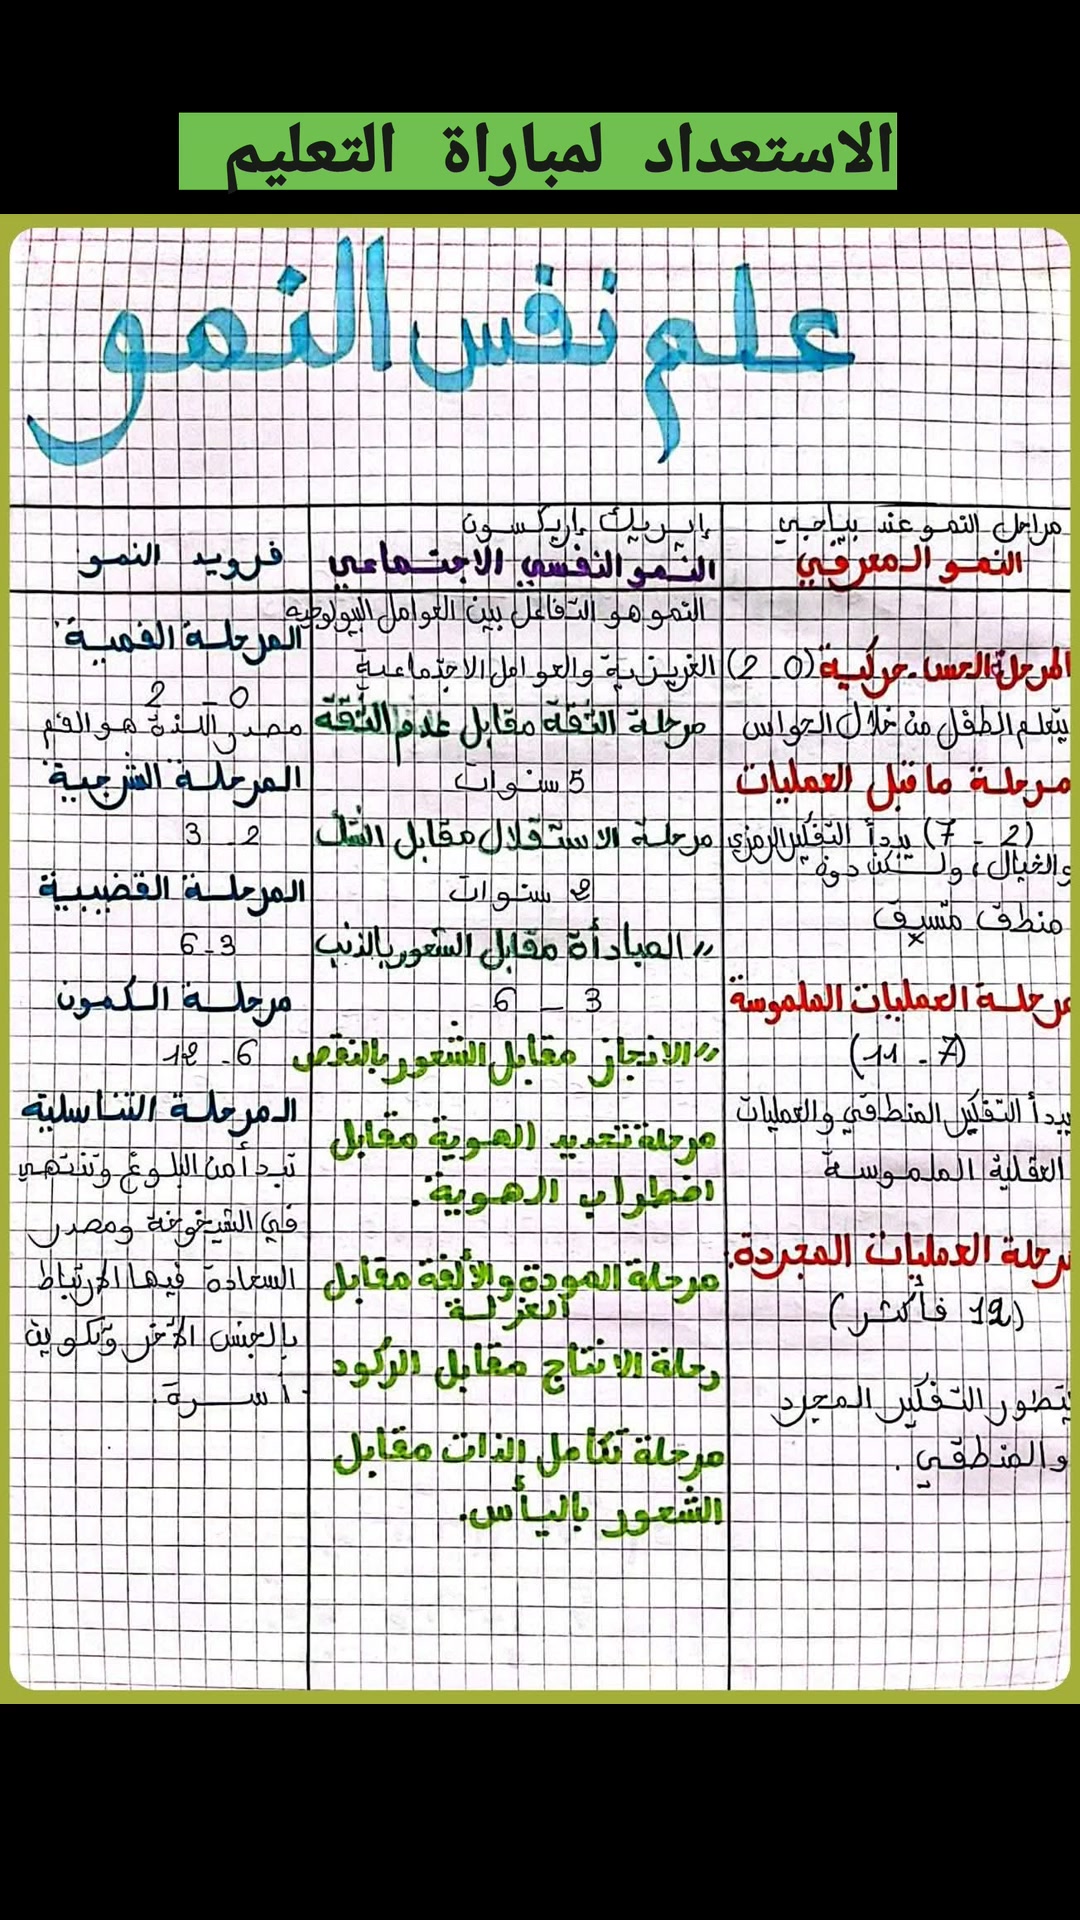 الاستعداد لمباراة التعليم
علم نفس النمو
مراحل النمو عند بياجي
النمو المعرفي
المرحلة الحسا-حركية (0-2)
يتعلم الطفل من خلال الحواس
مرحلة ما قبل العمليات
(2 - 7) يبدأ التفكير الرمزي
والخيال، ولكن دون
منطق متسق
مرحلة العمليات الملموسة
(7 - 11)
يبدأ التفكير المنطقي والعمليات
العقلية الملموسة
مرحلة العمليات المجردة.
(12 فأكثر)
يتطور التفكير المجرد
والمنطقي.
إيريك إريكسون
النمو النفسي الاجتماعي
النمو هو التفاعل بين العوامل البيولوجية
الغريزية والعوامل الاجتماعية
مرحلة الثقة مقابل عدم الثقة
5 سنوات
مرحلة الاستقلال مقابل الشك
2 سنوات
// المبادأة مقابل الشعور بالذنب
3 - 6
// الانجاز مقابل الشعور بالنقص
مرحلة تحديد الهوية مقابل
اضطراب الهوية.
مرحلة المودة والألفة مقابل
العزلة
رحلة الانتاج مقابل الركود
مرحلة تكامل الذات مقابل
الشعور باليأس.
فرويد النمو
المرحلة الفمية
0 - 2
مصدر اللذة هو الفم
المرحلة الشرجية
2 - 3
المرحلة القضيبية
3-6
مرحلة الكمون
6-12
المرحلة التناسلية
تبدأ من البلوغ وتنتهي
في الشيخوخة ومصدر
السعادة فيها الارتباط
بالجنس الآخر وتكوين
أسرة.